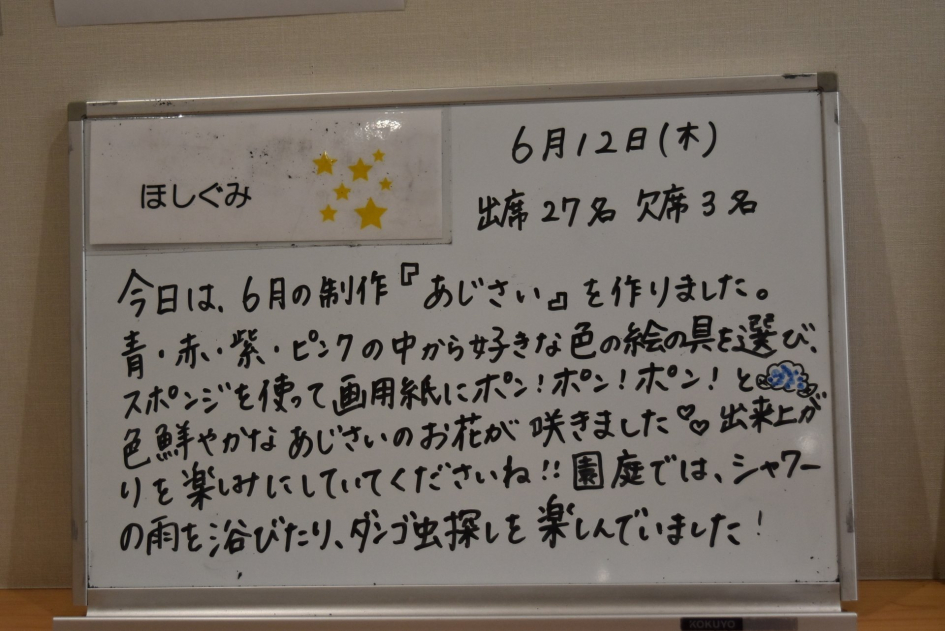 ほしぐみ
6月12日(木)
出席 27名 欠席 3名
今日は、6月の制作『あじさい』を作りました。
青・赤・紫・ピンクの中から好きな色の絵の具を選び、
スポンジを使って画用紙にポン!ポン!ポン!と
色鮮やかなあじさいのお花が咲きました♡♡出来上が
りを楽しみにしていてくださいね!!園庭では、シャワー
の雨を浴びたり、ダンゴ虫探しを楽しんでいました!
KOKUYO